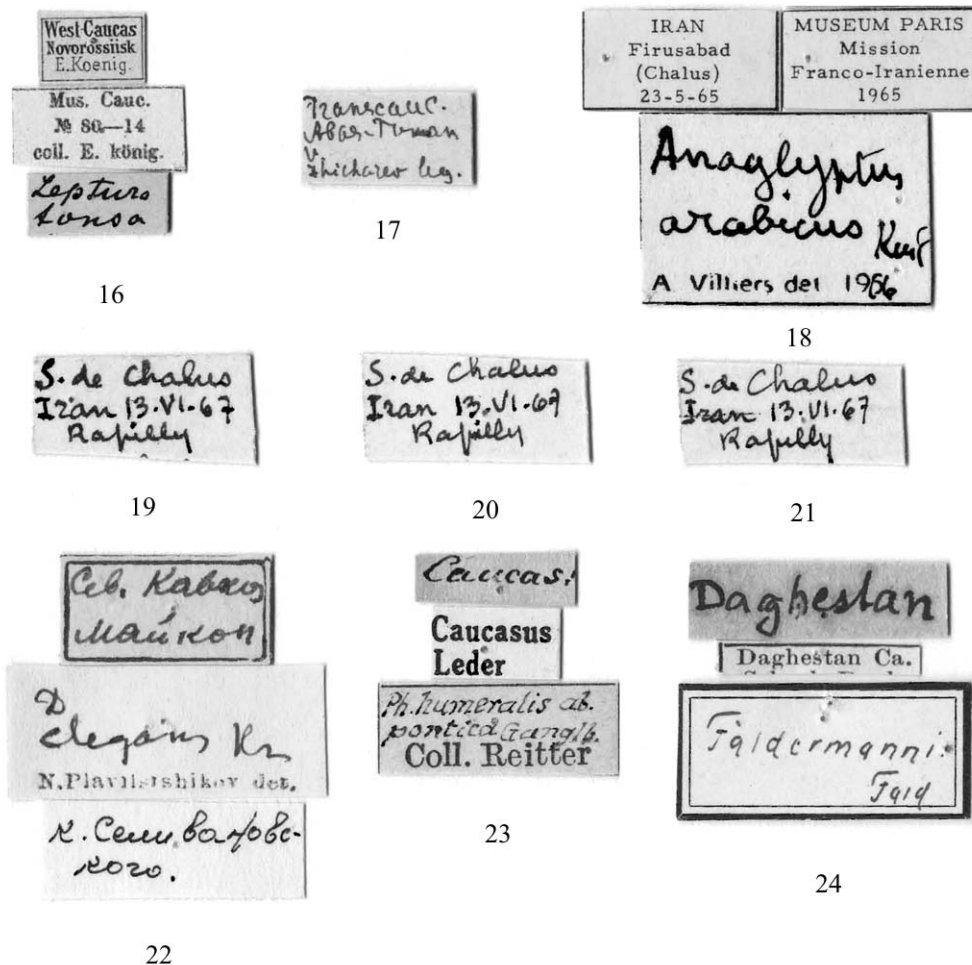 West-Caucas
Novorossiisk
E.Koenig.
Mus. Cauc.
№ 80—14
coll. E. könig.
Leptura
tonsa
16
Transcauc.
Abas-Tuman
v.
leg.
17
IRAN
Firusabad
(Chalus)
23-5-65
MUSEUM PARIS
Mission
Franco-Iranienne
1965
Anaglyptus
arabicus
A Villiers det 1966
18
S. de Chalus
Iran 13.VI.67
Rapilly
19
S. de Chalus
Iran 13.VI.67
Rapilly
20
S. de Chalus
Iran 13.VI.67
Rapilly
21
Сев. Кавказ
Майкоп
D
elegans Kr
N.Plavilstshikov det.
к.
кого.
22
Caucas.
Caucasus
Leder
Ph. humeralis ab.
pontica Ganglb.
Coll. Reitter
23
Daghestan
Daghestan Ca.
Faldermanni.
Fald
24